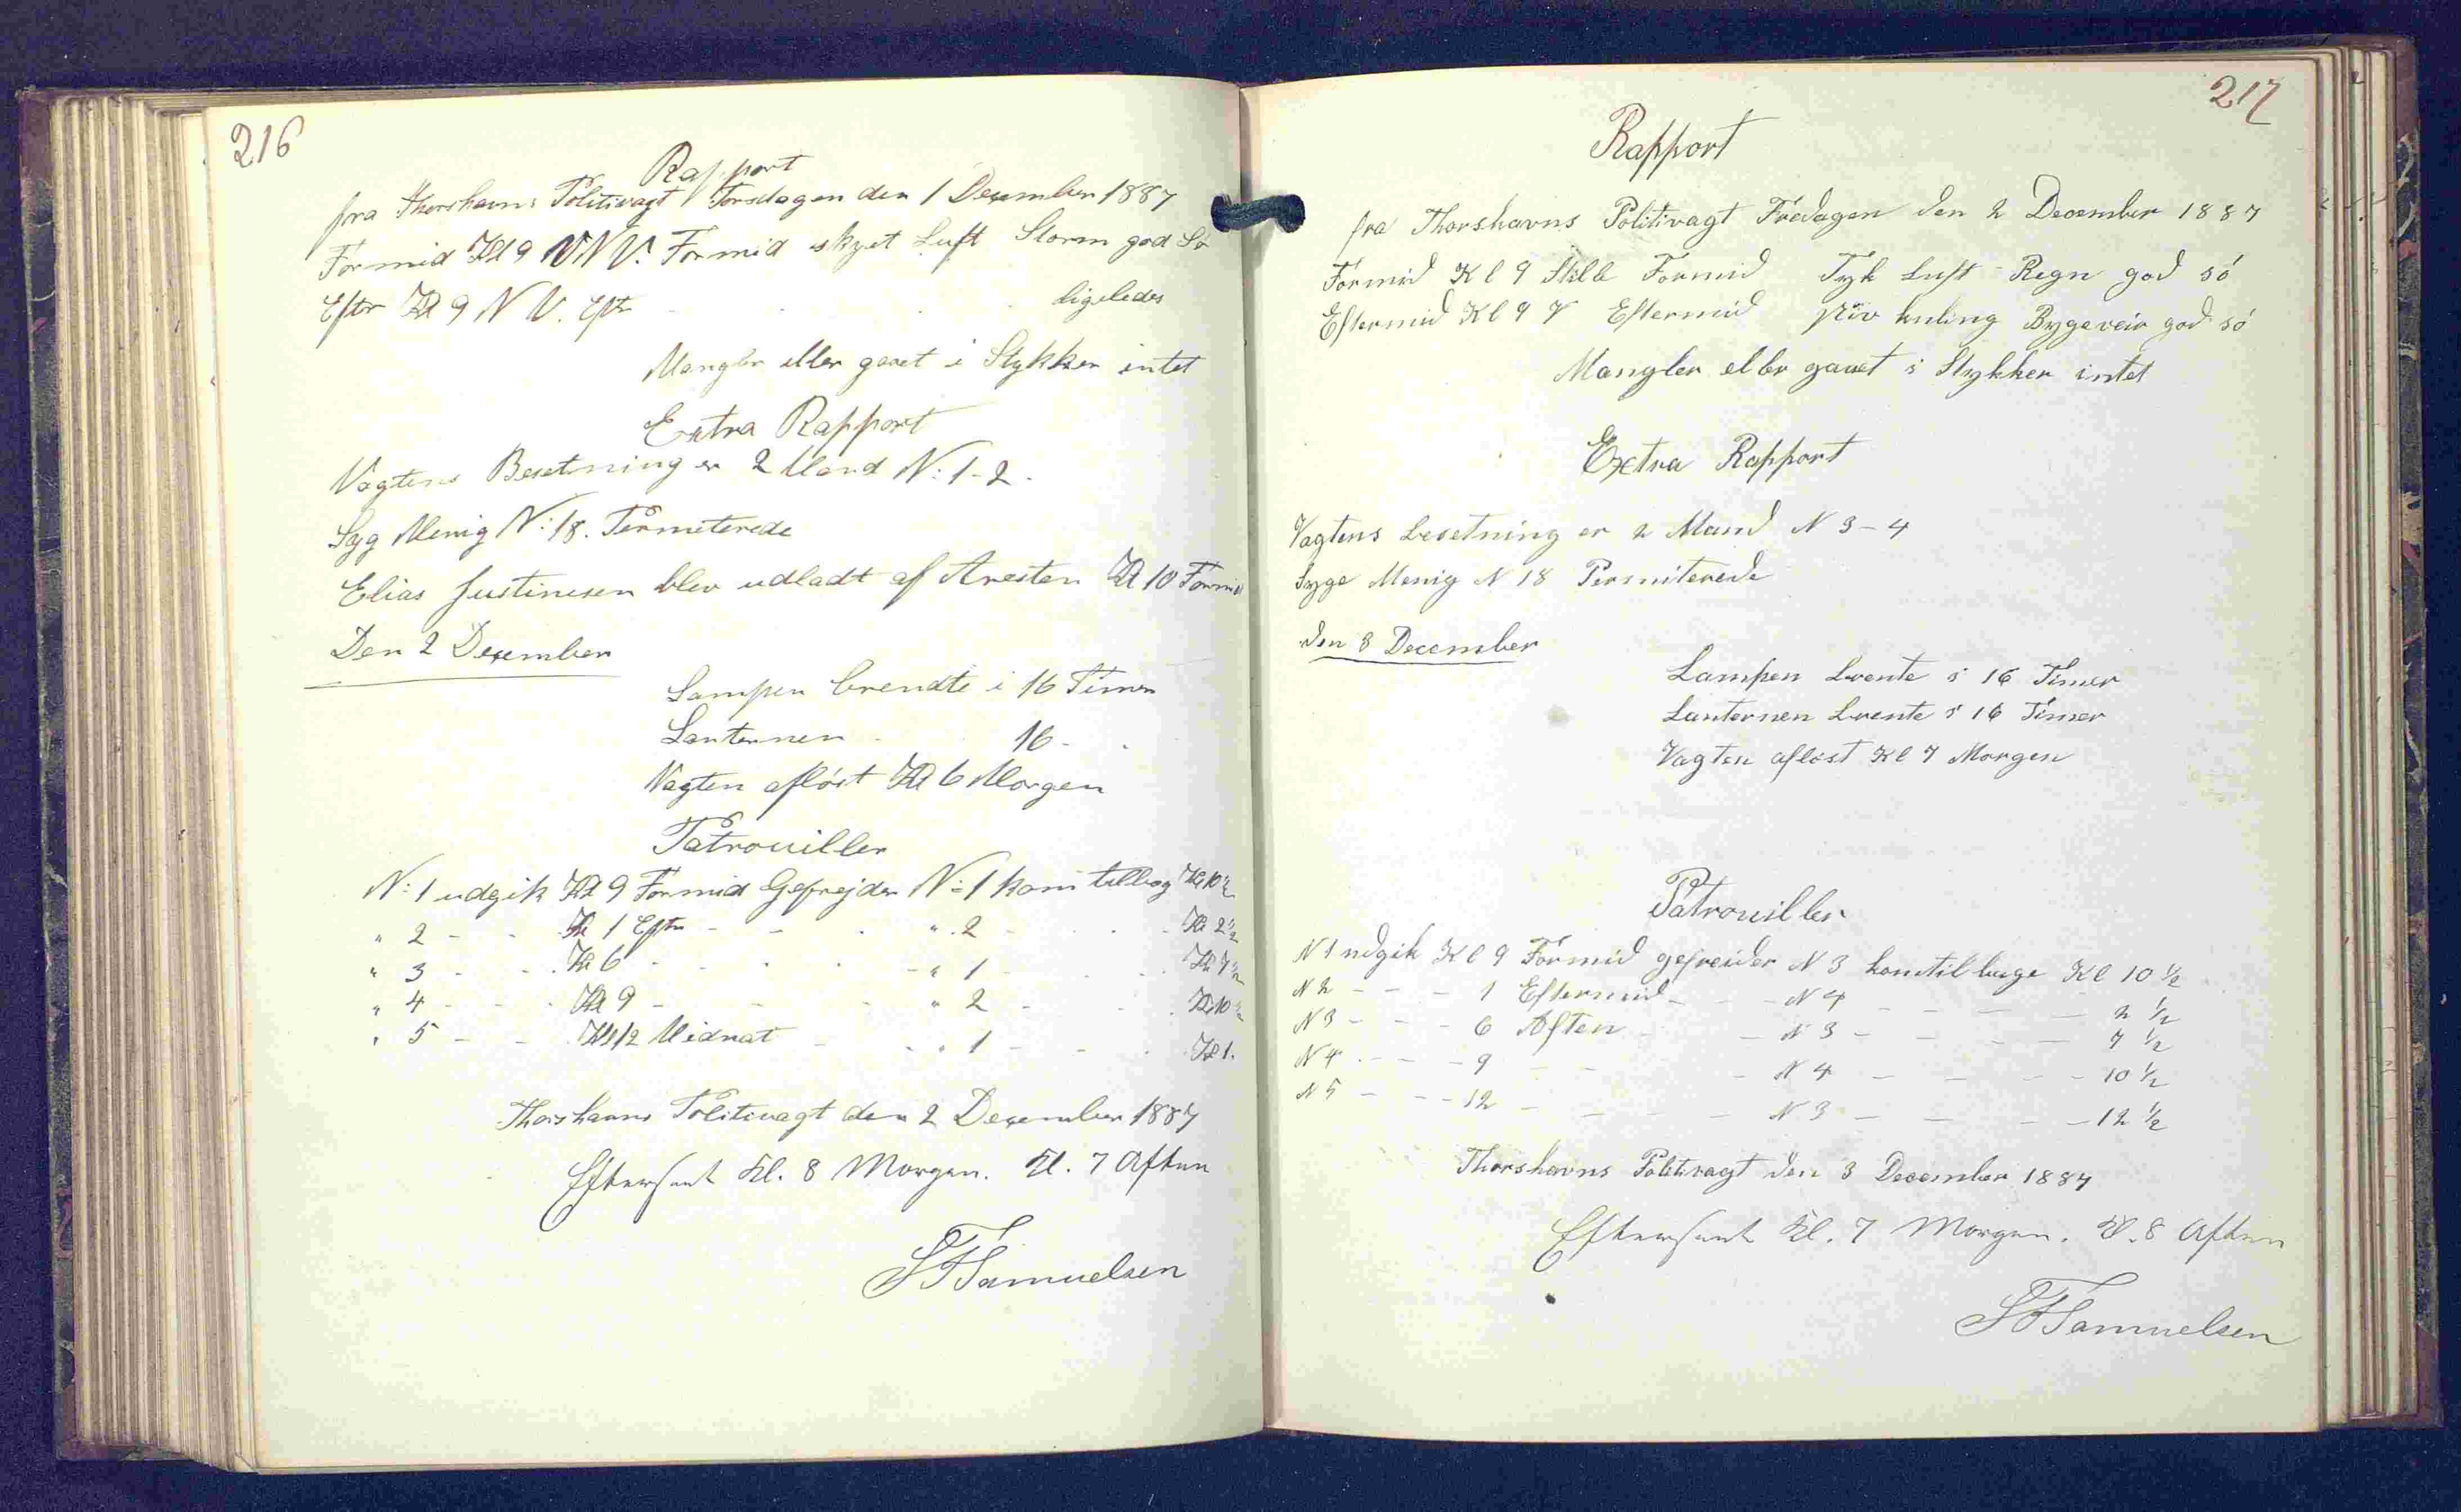 216
Rapport
fra Thorshavns Politivagt Torsdagen den 1 December 1887
Formid Kl 9 VNV. Formid skyet Luft Storm god Sö
Eftr Kl 9 N V. Eftr - - - ligeledes
Mangler eller gaaet i Stykker intet
Extra Rapport
Vagtens Besetning er 2 Mand N: 1-2.
Syg Menig N: 18. Permeterede
Elias Justinesen blev udladt af Aresten Kl 10 Formid
Den 2 December
Lampen brendte i 16 Timer
Lanternen - 16 -
Vagten aflöst Kl 6 Morgen
Patrouiller
N: 1 udgik Kl 9 Formid Gefrejder N: 1 kom tilbag Kl 10 1/2
" 2 - - Kl 1 Eftr - - - " 2 - - - Kl 2 1/2
" 3 - - Kl 6 - - - - " 1 - - - Kl 7 1/2
" 4 - - Kl 9 - - - " 2 - - - Kl 10 1/2
" 5 - - Kl 12 Midnat - - " 1 - - - Kl 1.
Thorshavns Politivagt den 2 December 1887
Efterseet Kl. 8 Morgen. Kl. 7 Aften
SFSamuelsen
217
Rapport
fra Thorshavns Politivagt Fredagen den 2 December 1887
Formid Kl 9 Stille Formid Tyk Luft Regn god sö
Eftermid Kl 9 V Eftermid stiv kuling Bygeveir god sö
Mangler eller gaaet i Stykker intet
Exctra Rapport
Vagtens besetning er 2 Mand N 3-4
Syge Menig N 18 Permiterede
den 3 December
Lampen brente i 16 Timer
Lanternen brente i 16 Timer
Vagten aflöst Kl 7 Morgen
Patrouiller
N 1 udgik Kl 9 Formid gefreider N 3 komtilbage Kl 10 1/2
N 2 - - - 1 Eftermid - - - N 4 - - - - 2 1/2
N 3 - - - 6 Aften - - N 3 - - - - 7 1/2
N 4 - - - 9 - - - N 4 - - - - 10 1/2
N 5 - - - 12 - - - - N 3 - - - - 12 1/2
Thorshavns Politivagt den 3 December 1887
Efterseet Kl. 7 Morgen. Kl. 8 Aften
SFSamuelsen